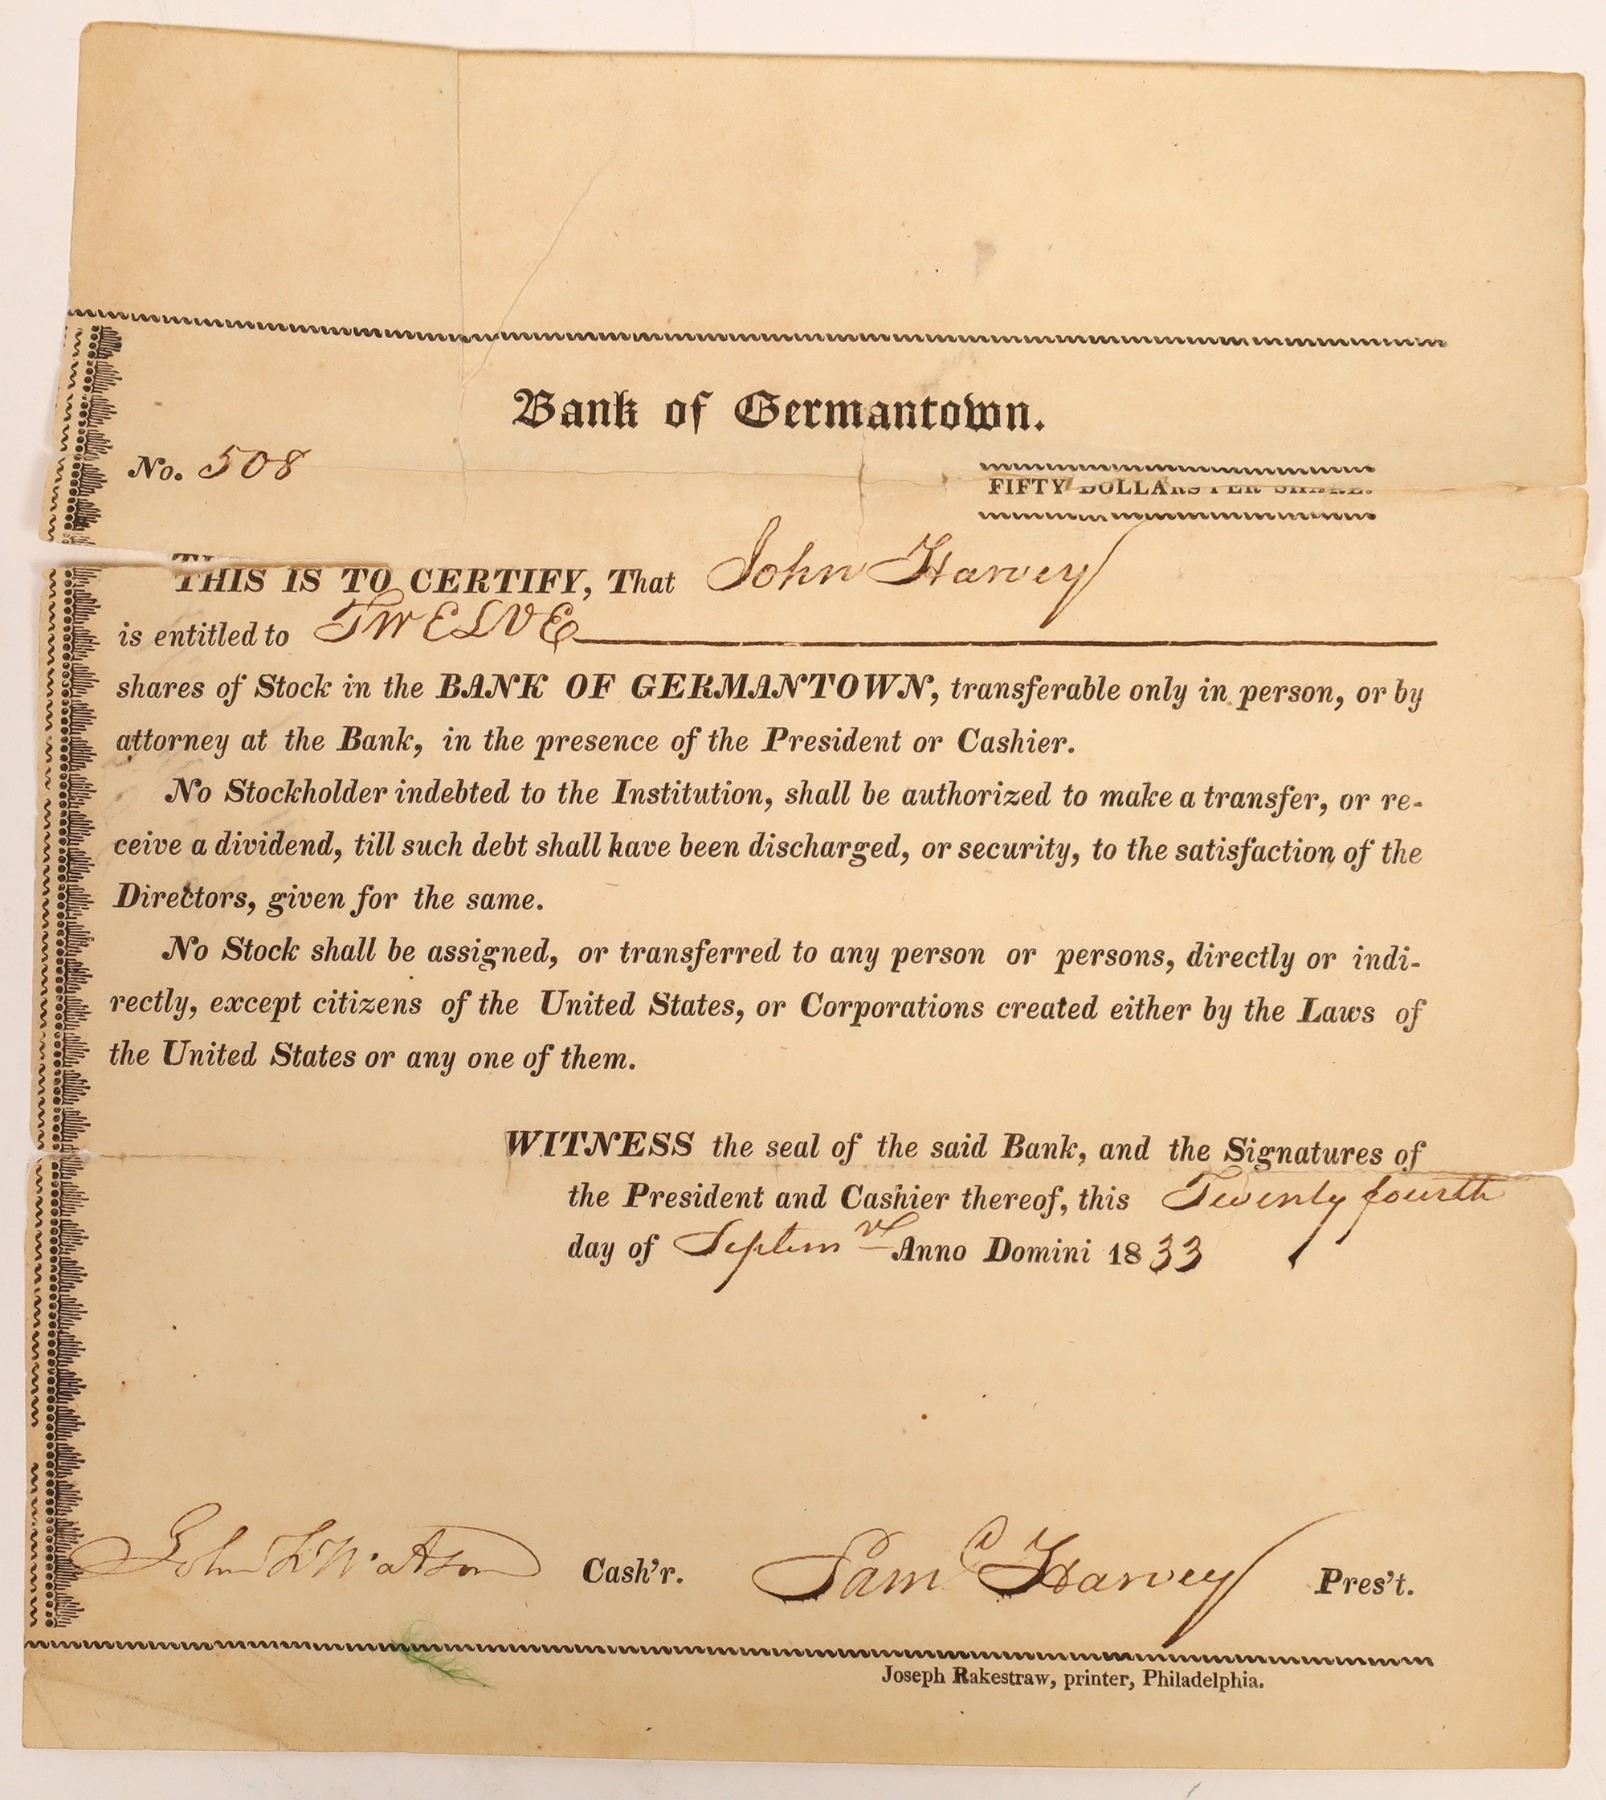 Bank of Germantown.
No. 508
FIFTY DOLLARS PER SHARE.
THIS IS TO CERTIFY, That John Harvey
is entitled to TWELVE
shares of Stock in the BANK OF GERMANTOWN, transferable only in person, or by
attorney at the Bank, in the presence of the President or Cashier.
No Stockholder indebted to the Institution, shall be authorized to make a transfer, or re-
ceive a dividend, till such debt shall have been discharged, or security, to the satisfaction of the
Directors, given for the same.
No Stock shall be assigned, or transferred to any person or persons, directly or indi-
rectly, except citizens of the United States, or Corporations created either by the Laws of
the United States or any one of them.
WITNESS the seal of the said Bank, and the Signatures of
the President and Cashier thereof, this Twenty fourth
day of Septem Anno Domini 1833
John F Watson Cash'r. Sam Harvey Pres't.
Joseph Rakestraw, printer, Philadelphia.